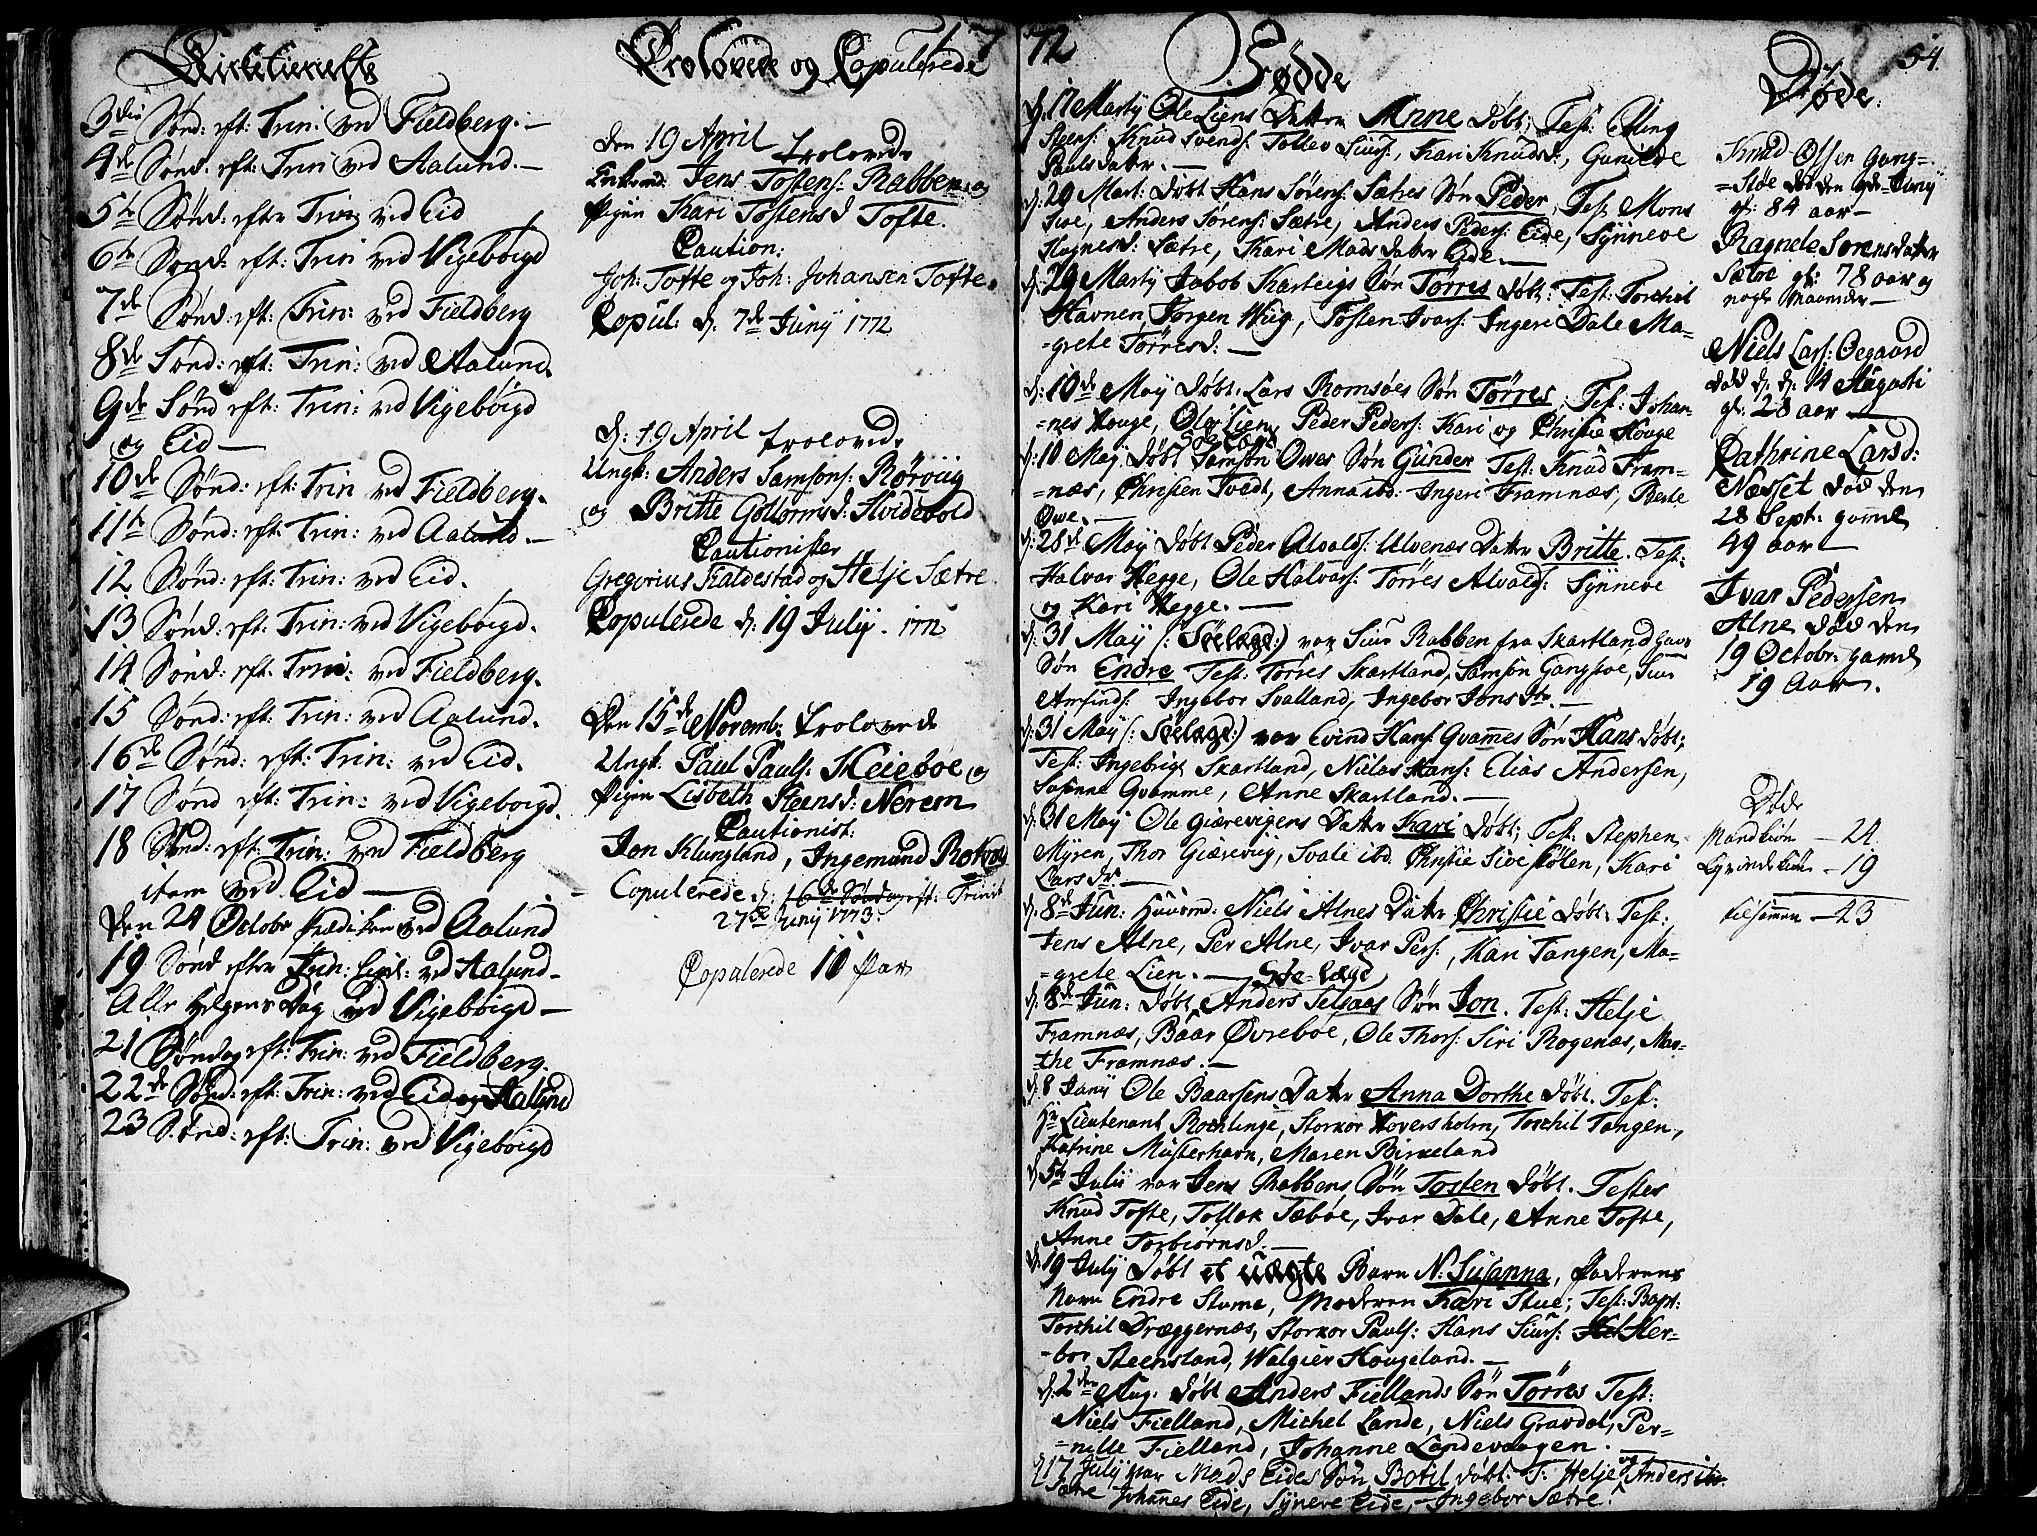 Kirketieneste
3die Sønd: eft: Trin: ved Fieldberg. —
4de Sønd: eft: Trin ved Aalund. —
5te Sønd: efter Trin: ved Eid
6te Sønd: eft: Trin ved Vigebøigd
7de Sønd: eft: Trin: ved Fieldberg
8de Sønd: eft: Trin: ved Aalund.
9de Sønd eft: Trin: ved Vigebøigd
og Eid —
10de Sønd: eft: Trin ved Fieldberg.
11te Sønd: eft: Trin: ved Aalund. —
12 Sønd: eft: Trin: ved Eid.
13 Sønd: eft: Trin: ved Vigebøigd.
14 Sønd: eft: Trin: ved Fieldberg.
15 Sønd: eft: Trin: ved Aalund.
16de Sønd: eft: Trin: ved Eid.
17 Sønd eft: Trin: ved Vigebøigd.
18 Sønd: eft: Trin: ved Fieldberg
item ved Eid —
Den 24 Octobr Prædiken ved Aalund
19 Sønd efter Trin: ved Aalund —
Alle Helgens Dag ved Vigebøigd —
21 Søndag eft: Trin: ved Fieldberg.
22de Sønd: eft: Trin: ved Eid og Aalund
23 Sønd: eft: Trin: ved Vigebøigd
Trolovede og Copulerede 17
den 19 April trolovede
Enkemd: Jens Tostens: Rabben og
Pigen Kari Tostensd Tofte.
Caution:
Joh: Tofte og Joh: Johansen Tofte.
Copul: d. 7de Junij 1772
d: 19 April trolovede
Ungk: Anders Samsons: Rørviig
og Britte Gottormsd: Hvidebold
Cautionister
Gregorius Kaldestad og Helje Sætre
Copulerede d: 19 Julij. 1772
Den 15de Novemb: trolovede
Ungk. Paul Pauls: Meiebøe og
Pigen Lisbeth Steensd: Nerem
Cautionist:
Jon Klungland, Ingemund
Copulerede d: 16de Søndag eft: Trinit
27de Junij 1773.
Copulerede 10 Par
72 Fødde
d: 17 Martij Ole Liens Datter Anne døbt; Test: Eling
Steens: Knud Svends: Tollev Siurs:, Kari Knudsd:, Gunilde
Pauls datr. —
d: 29 Mart: døbt Hans Sørens: Sætres Søn Peder, Test. Mons
Tvoe, Anders Sørens: Sætre, Anders Peders: Eide, Synneve
Hognesd: Sætre, Kari Mads datter Eide. —
d: 29 Martij Jakob Karteigs Søn Tørres døbt: Test: Torchil
Havnen, Jørgen Wiig, Tosten Ivars: Ingeri Dale Ma=
=grete Tørresd: —
d: 10de Maij døbt. Lars Romsøes Søn Tørres, Test: Johan=
=nes Houge, Ole Lien, Peder Peders: Kari og Christie Houge
d: 10 Maij døbt Samson Owes Søn Gunder Test: Knud Fram=
=næs, Christen Tvedt, Anna ibd: Ingeri Framnæs, Berte
Owe. —
d: 28de Maij døbt Peder Alvalds: Ulvenæs Datter Britte. Test:
Halvar Hegge, Ole Halvars: Tørres Alvalds: Synneve
og Kari Hegge. —
d: 31 Maij (: Søelægd:) var Siur Rabben fra Skartland
Søn Endre Test: Tørres Skartland, Samson Gangstøe, Siur
Amfinds: Ingebor Svalland, Ingebor Jons dtr. —
d: 31 Maij (: Søelægd:) var Evind Hans: Qvammes Søn Hans døbt;
Test: Ingebrigt Skartland, Niclas Hans: Elias Andersen,
Susanna Qvamme, Anne Skartland. —
d: 31 Maij Ole Giærevigens Datter Kari døbt; Test: Stephen
Myren, Thor Giærevig, Svale ibd. Christie Sivestølen, Kari
Lars dr. —
d: 8de Jun: Huusmd: Niels Alnes Datter Christie døbt. Test:
Jens Alne, Per Alne, Ivar Pers:, Kari Tangen, Ma=
=grete Lien. — Søe-lægd
d: 8de Jun: døbt Anders Selsaas Søn Jon. Test: Helje
Framnæs, Baar Øvrebøe, Ole Thors: Siri Rogenæs, Mar=
the Framnæs. —
d. 8 Junij Ole Baarsens Datter Anna Dorthe døbt. Test:
Hr Lieutenant Rochlinge, Storkor Hoversholm, Torchil Tangen,
Katrine Musterhavn, Maren Birkeland
d 5te Julii var Jens Rabbens Søn Tosten døbt. Testes
Knud Tofte, Tollak Sæbøe, Ivar Dale, Anne Tofte,
Anne Torbiørnsd. —
d: 19 Julij døbt et uægte Barn N: Susanna, Faderens
Navn Endre Stume, Moderen Kari Stue; Test: Bapt:
Torchil Dræggernæs, Storkor Pauls: Hans Siurs: Hel Her=
=bor Steensland, Walgier Hougeland. —
d. 2den Aug: døbt Anders Fiellands Søn Tørres Test:
Niels Fielland, Michel Lande, Niels Gravdal, Per=
=nille Fielland, Johanne Landevaagen.
d 17 Julij var Mads Eides Søn Botil døbt: T: Helje og Anders ibr.
Sætre Johanes Eide, Syneve Eide, Ingebor Sætre.
54.
Døde:
Knud Olsen Gang=
=støe død den 9de Junij
gl: 84 aar —
Ragnele Sørensdatter
Sætre gl: 78 aar og
nogle Maaneder —
Niels Lars: Øegaard
død d: d: 14 Augusti
gl: 28 aar —
Cathrine Larsd:
Næsset død den
28 Sept: gammel
49 aar —
Ivar Pedersen
Alne død den
19 Octobr: gamel
19 Aar.
Døde
Mandkiøn — 24
Qvindekiøn — 19
tilsammen — 43